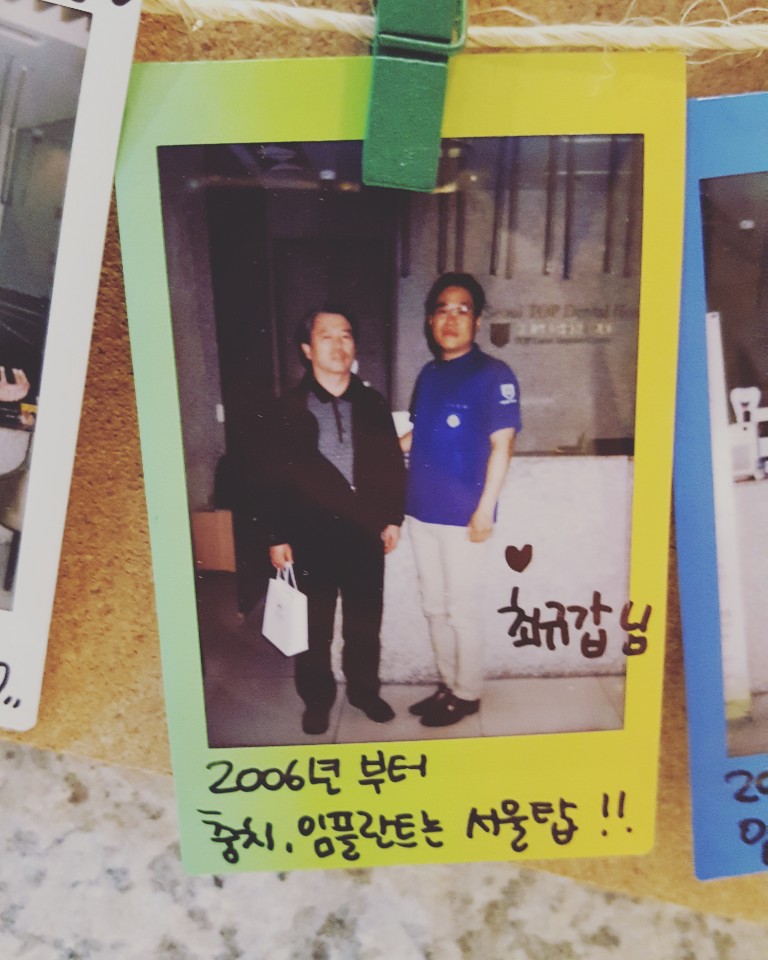 Seoul TOP Dental Hos
♥
최규갑님
2006년 부터
충치, 임플란트는 서울탑 !!
20